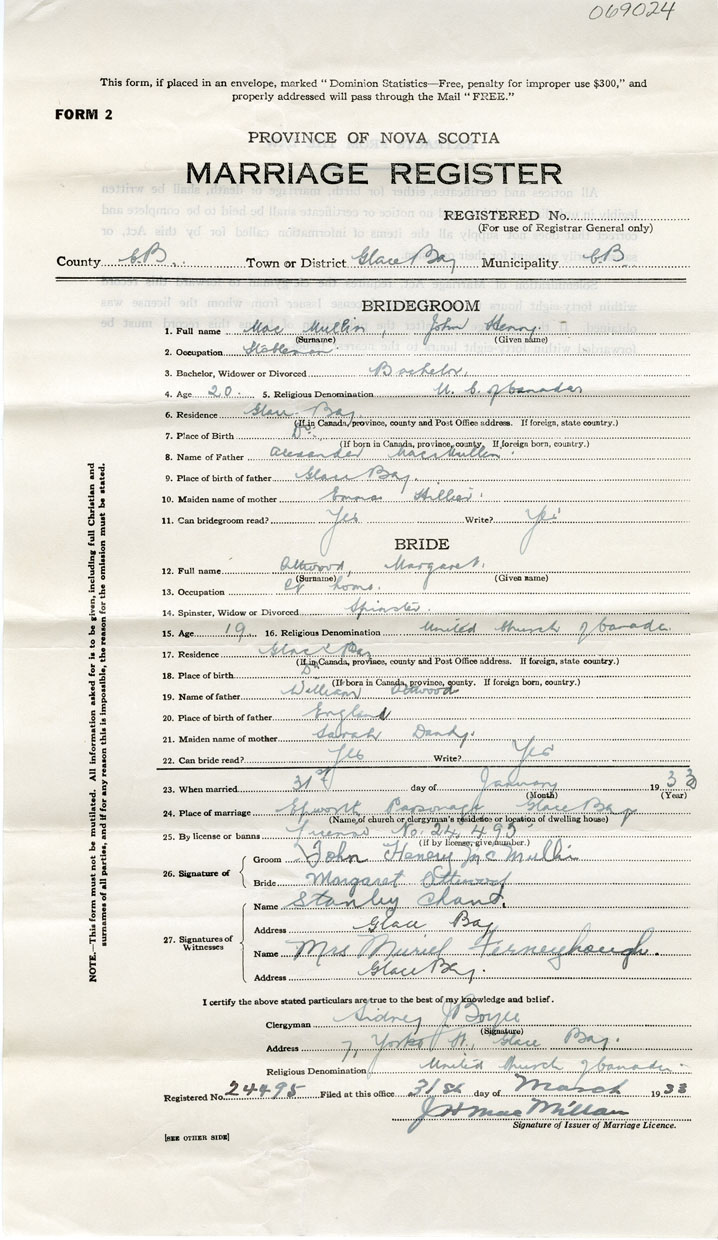 069024
This form, if placed in an envelope, marked "Dominion Statistics—Free, penalty for improper use $300," and
properly addressed will pass through the Mail "FREE."
FORM 2
PROVINCE OF NOVA SCOTIA
MARRIAGE REGISTER
REGISTERED No.
(For use of Registrar General only)
County C.B. Town or District Glace Bay Municipality C.B.
BRIDEGROOM
1. Full name Mac Mullin, John Henry.
(Surname) (Given name)
2. Occupation
3. Bachelor, Widower or Divorced Bachelor.
4. Age 20. 5. Religious Denomination U. C. of Canada
6. Residence Glace Bay
(If in Canada, province, county and Post Office address. If foreign, state country.)
7. Place of Birth Do.
(If born in Canada, province, county. If foreign born, country.)
8. Name of Father Alexander MacMullin.
9. Place of birth of father Glace Bay.
10. Maiden name of mother Emma Hillier.
11. Can bridegroom read? Yes Write? Yes
BRIDE
12. Full name Attwood, Margaret.
(Surname) (Given name)
13. Occupation At home.
14. Spinster, Widow or Divorced Spinster.
15. Age 19. 16. Religious Denomination United Church of Canada.
17. Residence Glace Bay
(If in Canada, province, county and Post Office address. If foreign, state country.)
18. Place of birth Do
(If born in Canada, province, county. If foreign born, country.)
19. Name of father William Attwood
20. Place of birth of father England
21. Maiden name of mother Sarah Dandy.
22. Can bride read? Yes Write? Yes
23. When married 31st day of January 1933
(Month) (Year)
24. Place of marriage Epworth Parsonage Glace Bay
(Name of church or clergyman's residence or location of dwelling house)
25. By license or banns License No. 24,495
(If by license, give number.)
26. Signature of
Groom John Henery McMullin
Bride Margaret Attwood
27. Signatures of Witnesses
Name Stanley Chant.
Address Glace Bay
Name Mrs Muriel Ferneyhough.
Address Glace Bay.
I certify the above stated particulars are true to the best of my knowledge and belief.
Clergyman Sidney J Boyce
(Signature)
Address 7, York St., Glace Bay.
Religious Denomination United Church of Canada
Registered No. 24495 Filed at this office 31st day of March 1933
J H MacMillan
Signature of Issuer of Marriage Licence.
[SEE OTHER SIDE]
NOTE.—This form must not be mutilated. All information asked for is to be given, including full Christian and
surnames of all parties, and if for any reason this is impossible, the reason for the omission must be stated.